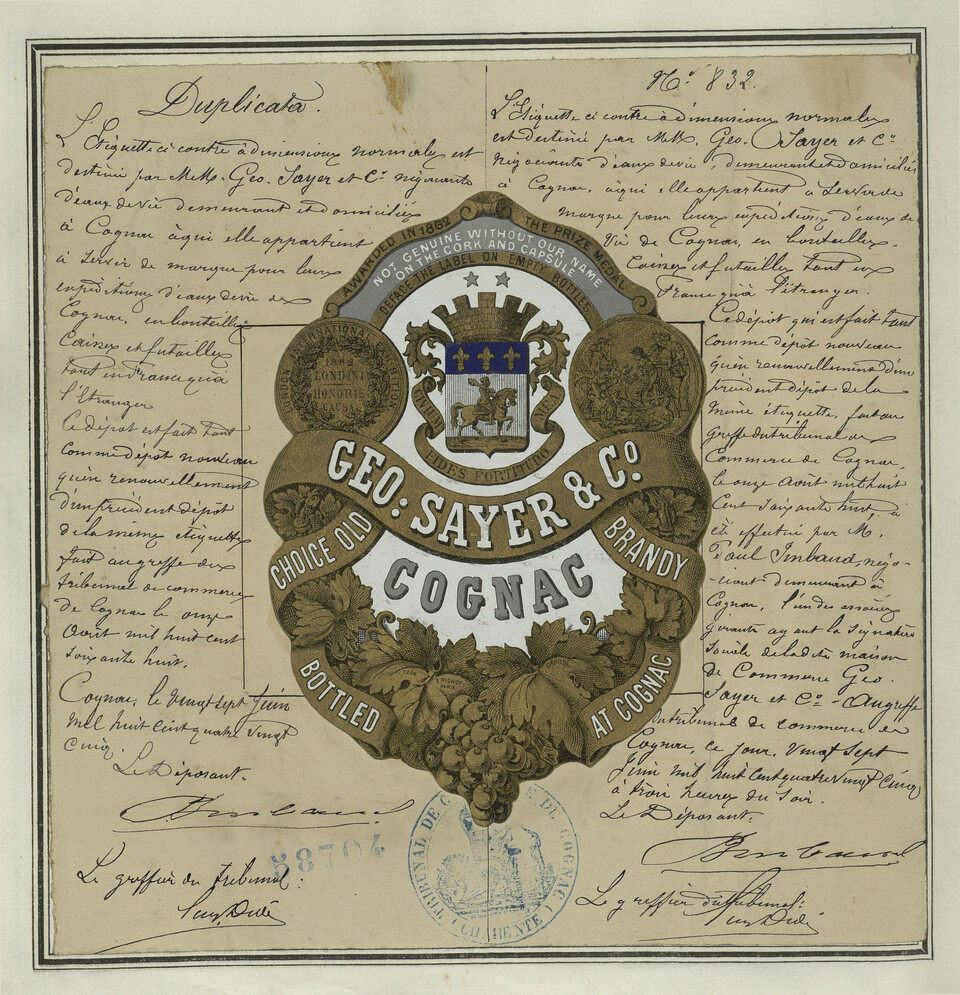 Duplicata.
L'Etiquette ci contre à dimensions normales est
destinée par MMrs. Geo. Sayer et Cie négociants
d'eaux de vie demeurant et domiciliés
à Cognac à qui elle appartient
à servir de marque pour leurs
expéditions d'eaux de vie de
Cognac, en bouteilles
Caisses et futailles
tant en France qu'à
l'Etranger
Ce dépôt est fait tant
comme dépôt nouveau
qu'en renouvellement
d'un précédent dépôt
de la même étiquette
fait au greffe du
tribunal de commerce
de Cognac le onze
Août mil huit cent
soixante huit.
Cognac, le vingt sept Juin
mil huit cent quatre vingt
cinq.
Le Déposant.
58704
Le greffier du tribunal:
No. 832.
L'Etiquette ci contre à dimensions normales
est destinée par MMrs. Geo. Sayer et Cie
négociants d'eaux de vie demeurant et domiciliés
à Cognac, à qui elle appartient à servir de
marque pour leurs expéditions d'eaux de
Vie de Cognac, en bouteilles,
Caisses et futailles tant en
France qu'à l'étranger.
Ce dépôt qui est fait tant
comme dépôt nouveau
qu'en renouvellement d'un
précédent dépôt de la
même étiquette, fait au
greffe du tribunal de
Commerce de Cognac,
le onze Août mil huit
Cent soixante huit, a
été effectué par M.
Paul Imbaud, négo-
-ciant demeurant à
Cognac, l'un des associés
gérants ayant la signature
sociale de la dite maison
de Commerce Geo.
Sayer et Cie - Au greffe
du tribunal de commerce de
Cognac, ce jour, Vingt Sept
Juin mil huit cent quatre vingt cinq
à trois heures du soir.
Le Déposant.
Le greffier du tribunal:
AWARDED IN 1862 THE PRIZE MEDAL
NOT GENUINE WITHOUT OUR NAME
ON THE CORK AND CAPSULE
DEFACE THE LABEL ON EMPTY BOTTLES
1862
LONDINI
HONORIS
CAUSA
FIDES FORTITUDO
GEO: SAYER & Co
CHOICE OLD
BRANDY
COGNAC
BOTTLED
AT COGNAC
TRIBUNAL DE C DE COGNAC
(CHARENTE)